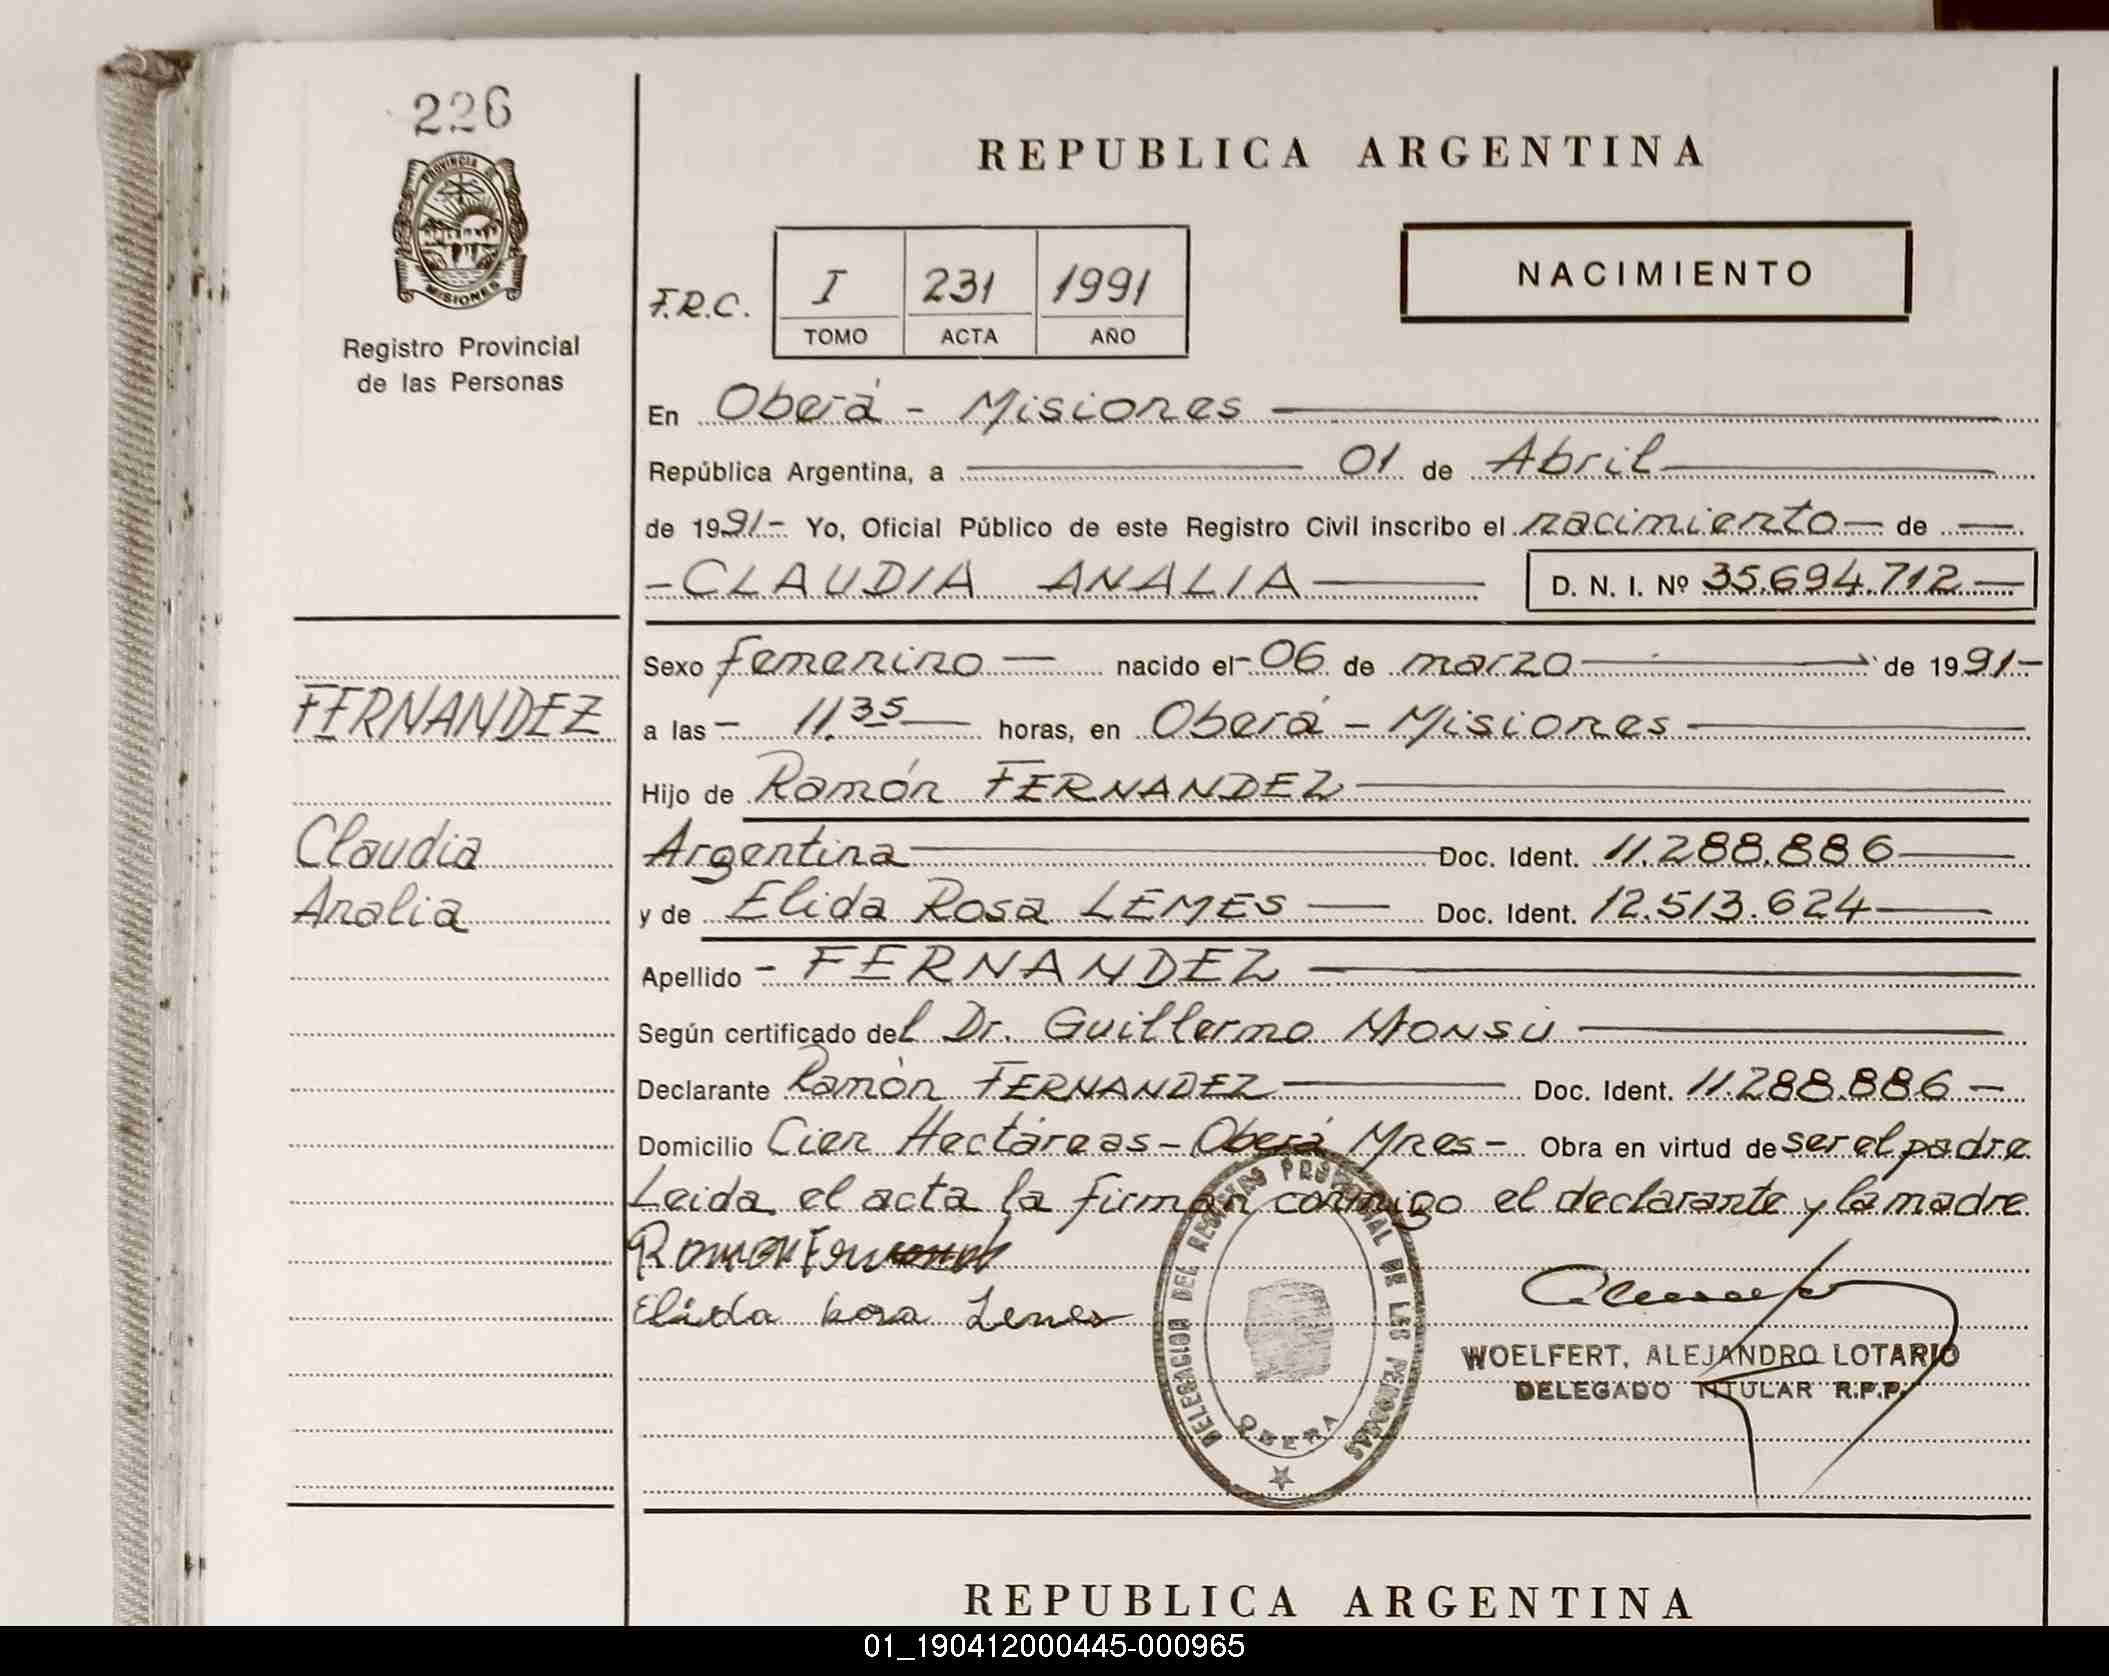 226
PROVINCIA
MISIONES
Registro Provincial
de las Personas
REPUBLICA ARGENTINA
NACIMIENTO
F.R.C. I 231 1991
TOMO ACTA AÑO
En Oberá - Misiones
República Argentina, a 01 de Abril
de 1991- Yo, Oficial Público de este Registro Civil inscribo el nacimiento de
- CLAUDIA ANALIA D. N. I. Nº 35.694.712
Sexo femenino nacido el 06 de marzo de 1991-
FERNANDEZ
a las - 11.35 horas, en Oberá - Misiones
Hijo de Ramón FERNANDEZ
Claudia
Argentina Doc. Ident. 11.288.886
Analia
y de Elida Rosa LEMES Doc. Ident. 12.513.624
Apellido - FERNANDEZ
Según certificado del Dr. Guillermo MONSU
Declarante Ramón FERNANDEZ Doc. Ident. 11.288.886 -
Domicilio Cien Hectáreas - Oberá Mnes - Obra en virtud de ser el padre
Leida el acta la firman conmigo el declarante y la madre
Ramon
Elida Rosa Lemes
DELEGACION DEL REGISTRO PROVINCIAL DE LAS PERSONAS
OBERA
WOELFERT, ALEJANDRO LOTARIO
DELEGADO TITULAR R.P.P.
REPUBLICA ARGENTINA
01_190412000445-000965